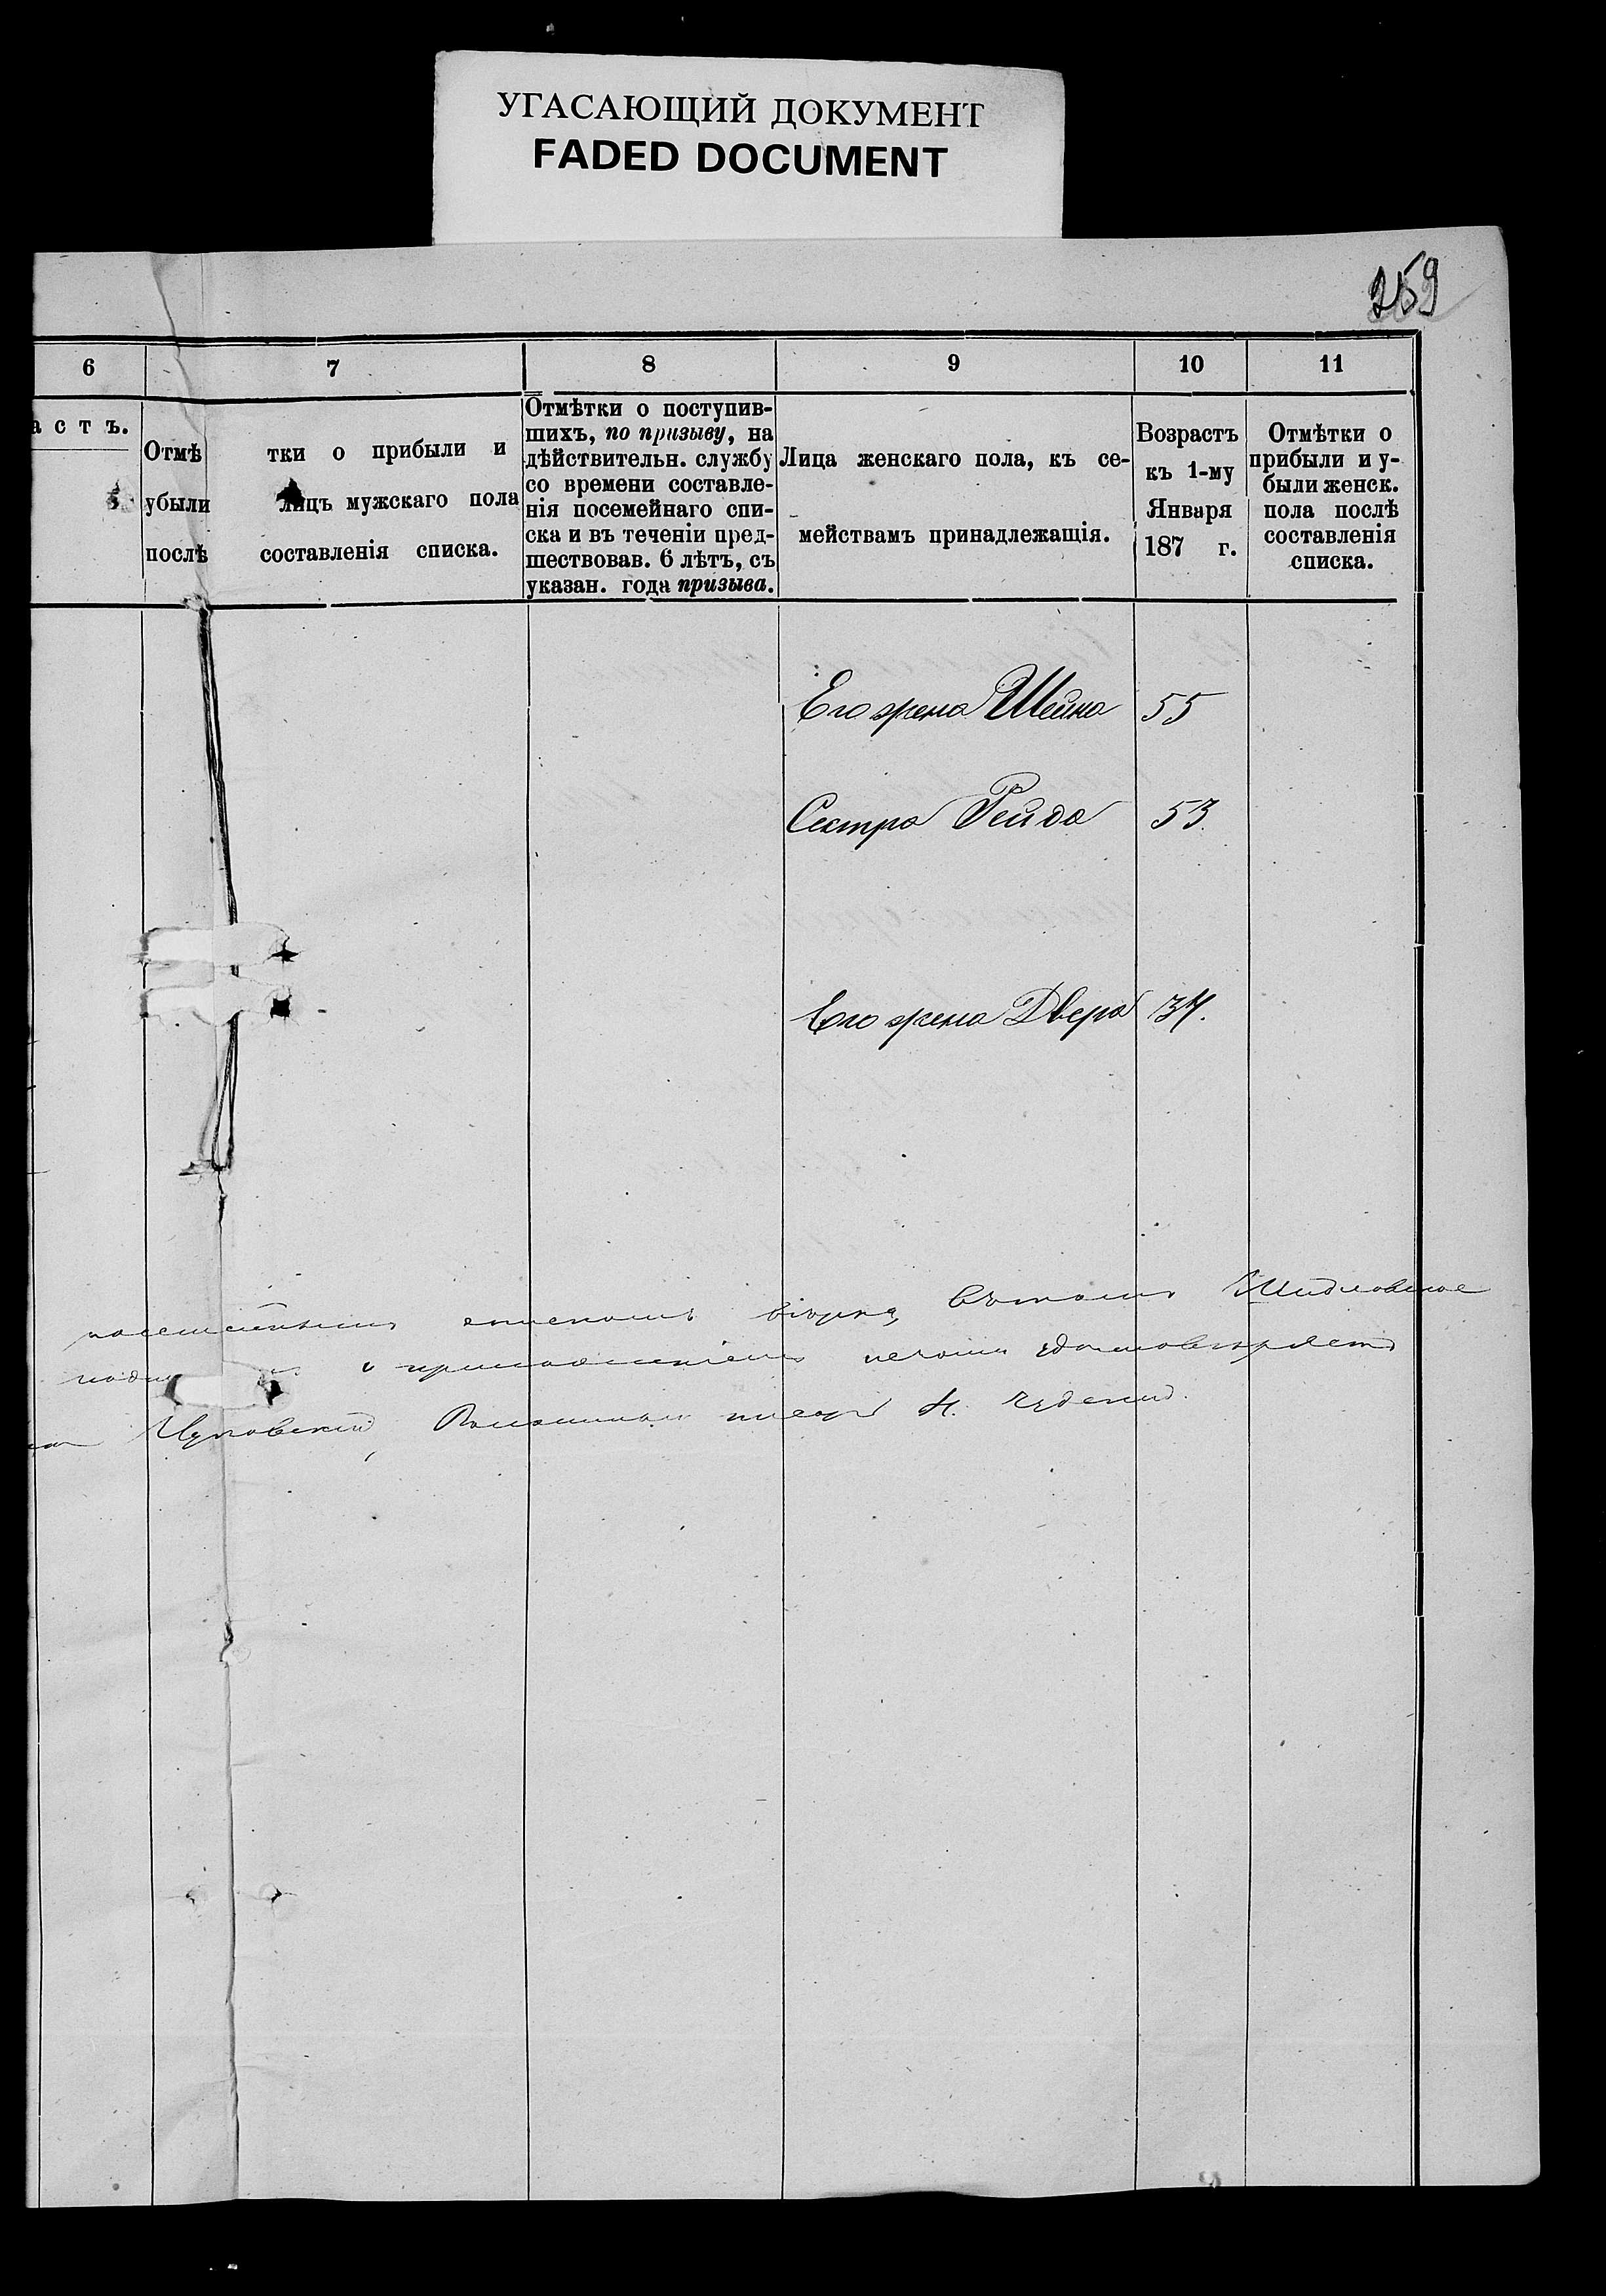 УГАСАЮЩИЙ ДОКУМЕНТ
FADED DOCUMENT
259
6 7 8 9 10 11
астъ.
Отмѣтки о прибыли и
убыли лицъ мужскаго пола
послѣ составленія списка.
Отмѣтки о поступив-
шихъ, по призыву, на
дѣйствительн. службу
со времени составле-
нія посемейнаго спи-
ска и въ теченіи пред-
шествовав. 6 лѣтъ, съ
указан. года призыва.
Лица женскаго пола, къ се-
мействамъ принадлежащія.
Возрастъ
къ 1-му
Января
187 г.
Отмѣтки о
прибыли и у-
были женск.
пола послѣ
составленія
списка.
Его жена Шейна 55
Сестра Рейда 53.
Его жена Двера 34.
посемейнымъ спискомъ вѣрна, въ томъ Шидловское
съ приложеніемъ печати удостовѣряетъ
Волостной писарь